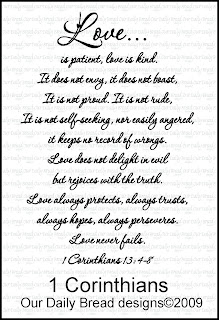 Love...
is patient, love is kind.
It does not envy, it does not boast,
It is not proud. It is not rude,
It is not self-seeking, nor easily angered,
it keeps no record of wrongs.
Love does not delight in evil
but rejoices with the truth.
Love always protects, always trusts,
always hopes, always perseveres.
Love never fails.
1 Corinthians 13:4-8
1 Corinthians
Our Daily Bread designs©2009